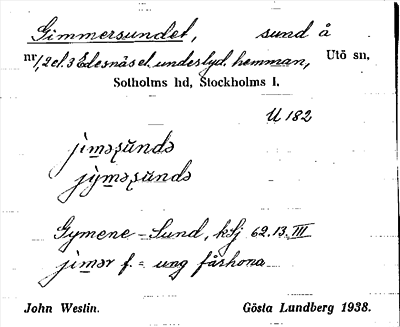 Gimmersundet, sund å
nr 1, 2 el. 3 Edesnäs el. underlyd. hemman, Utö sn,
Sotholms hd, Stockholms l.
U 182
jìməṣundə
jỳməṣundə
Gymene-Sund, ksj 62.13.III
jimər f. = ung fårhona
John Westin. Gösta Lundberg 1938.